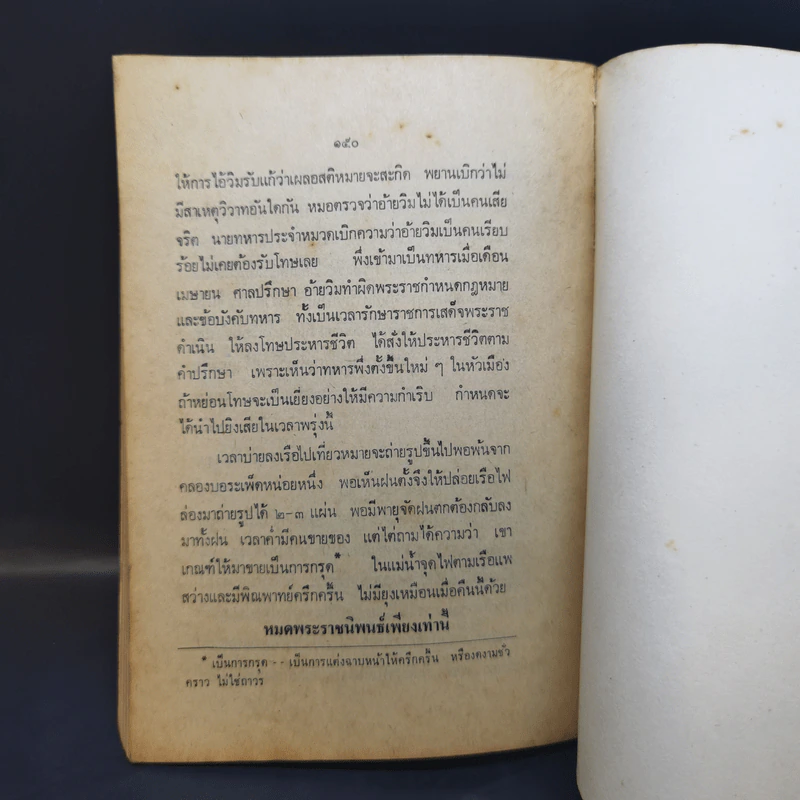 ๑๕๐
ให้การไอ้วิมรับแก้ว่าเผลอสติหมายจะสะกิด พยานเบิกว่าไม่
มีสาเหตุวิวาทอันใดกัน หมอตรวจว่าอ้ายวิมไม่ได้เป็นคนเสีย
จริต นายทหารประจำหมวดเบิกความว่าอ้ายวิมเป็นคนเรียบ
ร้อยไม่เคยต้องรับโทษเลย พึ่งเข้ามาเป็นทหารเมื่อเดือน
เมษายน ศาลปรึกษา อ้ายวิมทำผิดพระราชกำหนดกฎหมาย
และข้อบังคับทหาร ทั้งเป็นเวลารักษาราชการเสด็จพระราช
ดำเนิน ให้ลงโทษประหารชีวิต ได้สั่งให้ประหารชีวิตตาม
คำปรึกษา เพราะเห็นว่าทหารพึ่งตั้งขึ้นใหม่ ๆ ในหัวเมือง
ถ้าหย่อนโทษจะเป็นเยี่ยงอย่างให้มีความกำเริบ กำหนดจะ
ได้นำไปยิงเสียในเวลาพรุ่งนี้
เวลาบ่ายลงเรือไปเที่ยวหมายจะถ่ายรูปขึ้นไปพอพ้นจาก
คลองบอระเพ็ดหน่อยหนึ่ง พอเห็นฝนตั้งจึงให้ปล่อยเรือไฟ
ล่องมาถ่ายรูปได้ ๒-๓ แผ่น พอมีพายุจัดฝนตกต้องกลับลง
มาทั้งฝน เวลาค่ำมีคนขายของ แต่ไต่ถามได้ความว่า เขา
เกณฑ์ให้มาขายเป็นการกรุด* ในแม่น้ำจุดไฟตามเรือแพ
สว่างและมีพิณพาทย์ครึกครื้น ไม่มียุงเหมือนเมื่อคืนนี้ด้วย
หมดพระราชนิพนธ์เพียงเท่านี้
* เป็นการกรุด -- เป็นการแต่งฉาบหน้าให้ครึกครื้น หรืองดงามชั่ว
คราว ไม่ใช่ถาวร